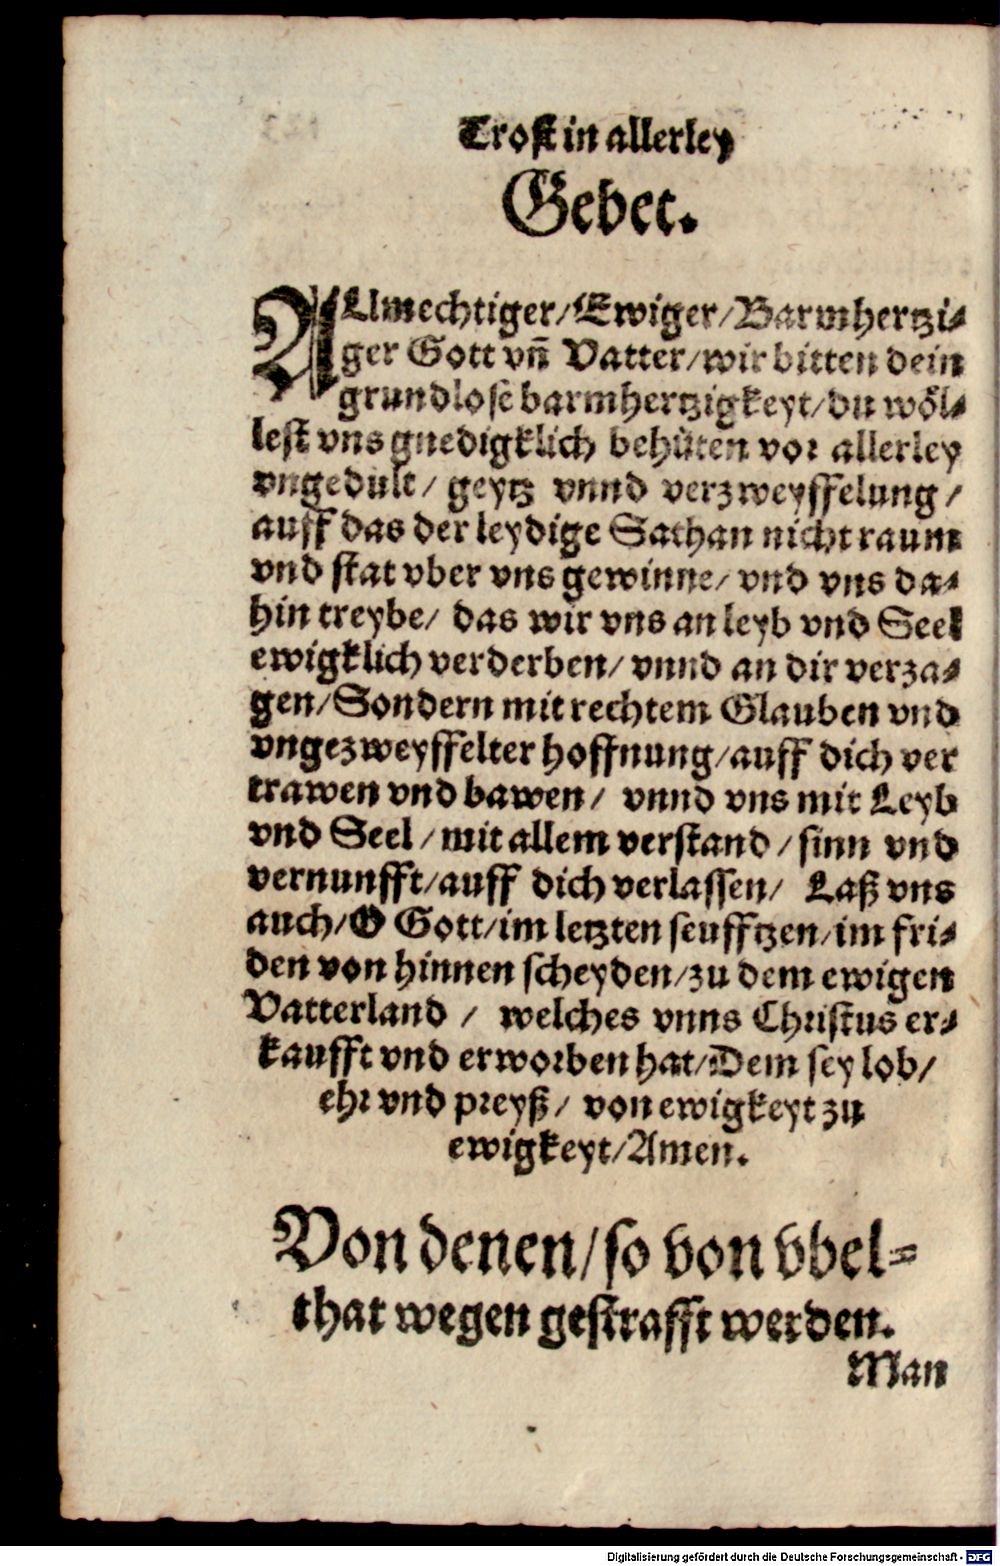 Trost in allerley
Gebet.
ALlmechtiger/Ewiger/Barmhertzi-
ger Gott vñ Vatter/wir bitten dein
grundlose barmhertzigkeyt/du wöl-
lest vns gnedigklich behüten vor allerley
vngedult/ geytz vnnd verzweyffelung/
auff das der leydige Sathan nicht raum
vnd stat vber vns gewinne/ vnd vns da-
hin treybe/ das wir vns an leyb vnd Seel
ewigklich verderben/ vnnd an dir verza-
gen/Sondern mit rechtem Glauben vnd
vngezweyffelter hoffnung/auff dich ver
trawen vnd bawen/ vnnd vns mit Leyb
vnd Seel/mit allem verstand/sinn vnd
vernunfft/auff dich verlassen/ Laß vns
auch/O Gott/im letzten seufftzen/im fri-
den von hinnen scheyden/zu dem ewigen
Vatterland / welches vnns Christus er-
kaufft vnd erworben hat/Dem sey lob/
ehr vnd preyß/ von ewigkeyt zu
ewigkeyt/Amen.
Von denen/so von vbel-
that wegen gestrafft werden.
Man
Digitalisierung gefördert durch die Deutsche Forschungsgemeinschaft - DFG